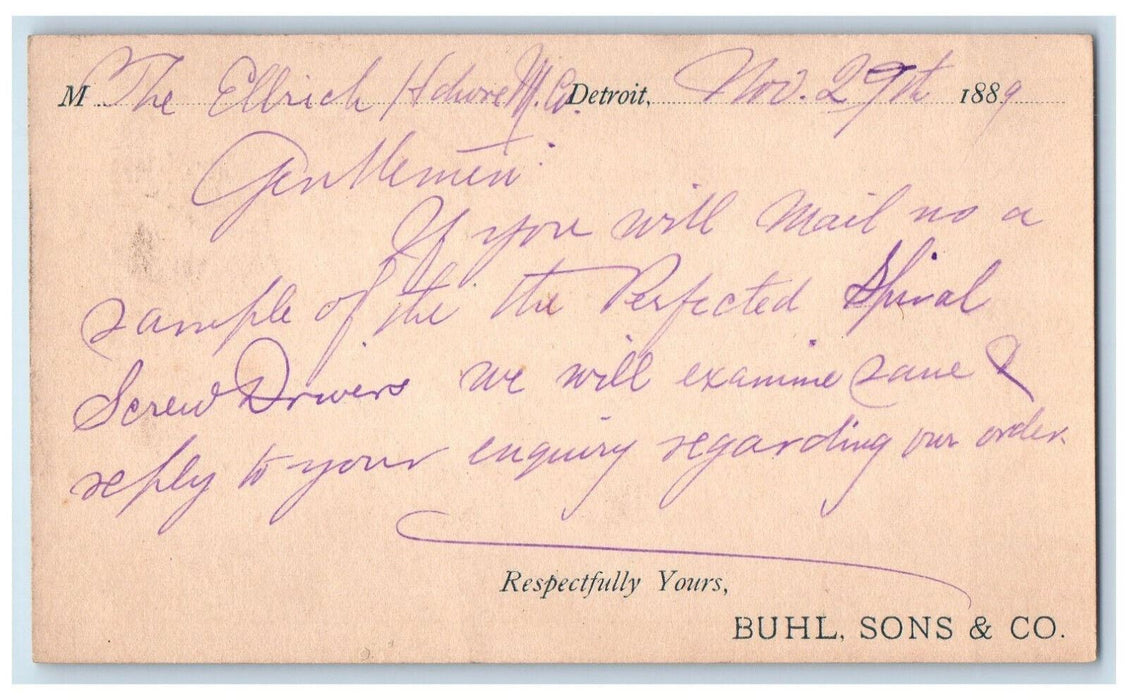 M The Ellrich Hdware M. Co. Detroit, Nov. 29th 1889
Gentlemen:
If you will mail us a
sample of the the Perfected Spiral
Screw Drivers we will examine same &
reply to your enquiry regarding our order.
Respectfully Yours,
BUHL, SONS & CO.